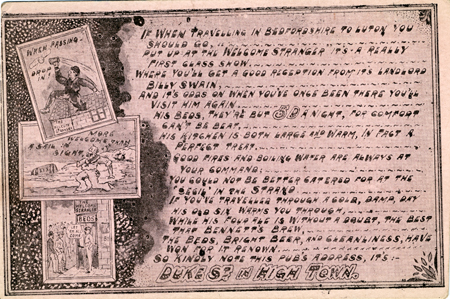 WHEN PASSING
DROP IN
MORE
WELCOME THAN
A SAIL IN
SIGHT
BEDS
IF WHEN TRAVELLING IN BEDFORDSHIRE TO LUTON YOU
SHOULD GO,
PUT UP AT THE "WELCOME STRANGER" IT'S A REALLY
FIRST CLASS SHOW
WHERE YOU'LL GET A GOOD RECEPTION FROM ITS LANDLORD
BILLY SWAIN,
AND IT'S ODDS ON WHEN YOU'VE ONCE BEEN THERE YOU'LL
VISIT HIM AGAIN
HIS BEDS, THEY'RE BUT A NIGHT, FOR COMFORT
CAN'T BE BEAT,
HIS KITCHEN IS BOTH LARGE AND WARM, IN FACT A
PERFECT TREAT,
GOOD FIRES AND BOILING WATER ARE ALWAYS AT
YOUR COMMAND;
YOU COULD NOT BE BETTER CATERED FOR AT THE
"CECIL" IN THE STRAND.
IF YOU'VE TRAVELLED THROUGH A COLD, DAMP, DAY
HIS OLD SIX WARMS YOU THROUGH,
WHILE HIS FOUR ALE IS WITHOUT A DOUBT, THE BEST
THAT BENNETT'S BREW.
THE BEDS, BRIGHT BEER, AND CLEANLINESS, HAVE
WON FOR IT RENOWN
SO KINDLY NOTE THIS PUB'S ADDRESS, IT'S:-
DUKE ST IN HIGH TOWN.